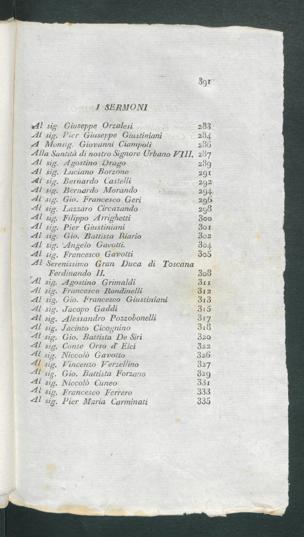 391
I SERMONI
Al sig. Giuseppe Orzalesi 283
Al sig. Pier Giuseppe Giustiniani 284
A Monsig. Giovanni Ciampoli 286
Alla Santità di nostro Signore Urbano VIII. 287
Al sig. Agostino Drago 289
Al sig. Luciano Borzone 291
Al sig. Bernardo Castelli 292
Al sig. Bernardo Morando 294
Al sig. Gio. Francesco Geri 296
Al sig. Lazzaro Circazando 298
Al sig. Filippo Arrighetti 300
Al sig. Pier Giustiniani 301
Al sig. Gio. Battista Riario 302
Al sig. Angelo Gavotti. 304
Al sig. Francesco Gavotti 305
Al Serenissimo Gran Duca di Toscana
Ferdinando II. 308
Al sig. Agostino Grimaldi 311
Al sig. Francesco Rondinelli 312
Al sig. Gio. Francesco Giustiniani 313
Al sig. Jacopo Gaddi 315
Al sig. Alessandro Pozzobonelli 317
Al sig. Jacinto Cicognino 318
Al sig. Gio. Battista De Siri 320
Al sig. Conte Orso d' Elci 322
Al sig. Niccolò Gavotto 326
Al sig. Vincenzo Verzellino 327
Al sig. Gio. Battista Forzano 329
Al sig. Niccolò Cuneo 331
Al sig. Francesco Ferrero 333
Al sig. Pier Maria Carminati 335